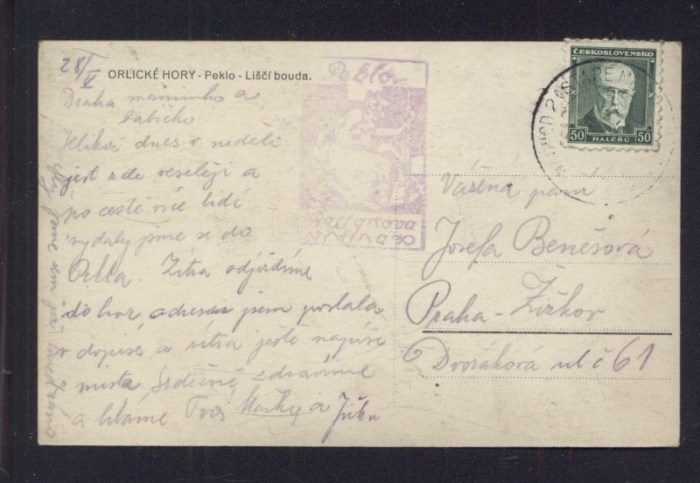 28/V
ORLICKÉ HORY - Peklo - Liščí bouda.
Drahá maminko a
babičko
Jelikož dnes v neděli
jest zde veseleji a
po cestě více lidí
vydaly jsme se do
Pekla. Zítra odjíždíme
do hor adresu jsem poslala
v dopise a zítra ještě napíše
z místa Srdečně zdravíme
a líbáme Tvá a
ČESKOSLOVENSKO
50 HALÉŘŮ 50
Vážená paní
Josefa Benešová
Praha - Žižkov
Dvořákova ul č 61